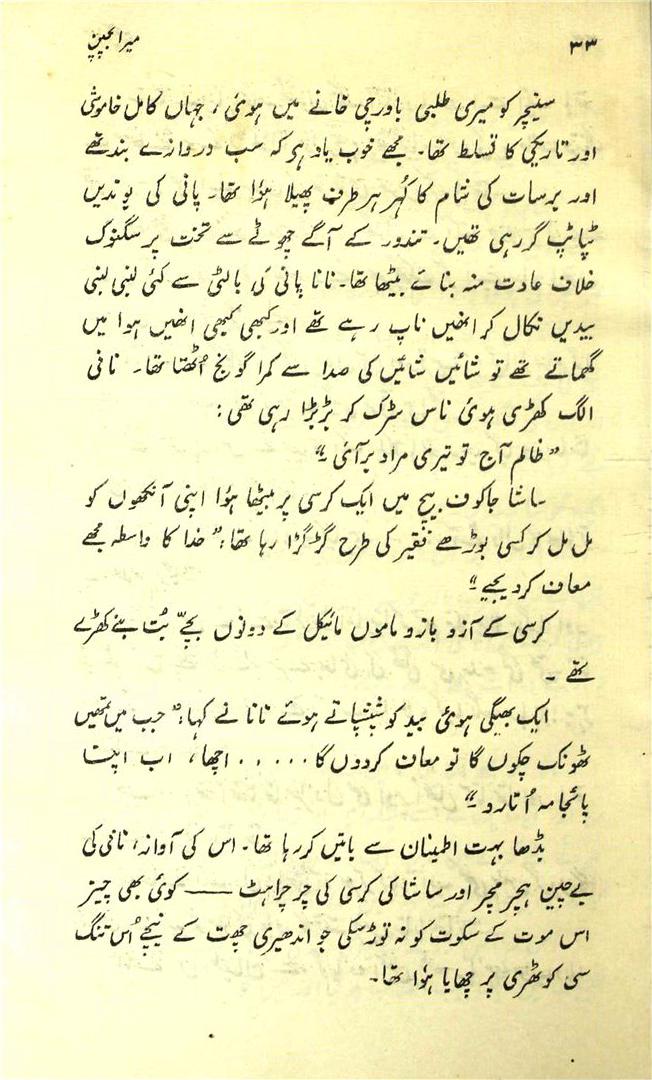 ۳۳ میرا بچپن
سنیچر کو میری طلبی باورچی خانے میں ہوئی، جہاں کامل خاموشی
اور تاریکی کا تسلط تھا۔ مجھے خوب یاد ہر کہ سب دروازے بند تھے
اور برسات کی شام کا کُہر ہر طرف پھیلا ہؤا تھا۔ پانی کی بوندیں
ٹپاٹپ گر رہی تھیں۔ تندور کے آگے چھوٹے سے تخت پر سگنوک
خلاف عادت منہ بنائے بیٹھا تھا۔ نانا پانی کی بالٹی سے کئی لنبی لنبی
بیدیں نکال کر انھیں ناپ رہے تھے اور کبھی کبھی انھیں ہوا میں
گھماتے تھے تو شائیں شائیں کی صدا سے کمرا گونج اُٹھتا تھا۔ نانی
الگ کھڑی ہوئی ناس سڑک کر بڑبڑا رہی تھی:
”ظالم آج تو تیری مراد بر آئی۔“
ساشا جاکوف بیچ میں ایک کرسی پر بیٹھا ہؤا اپنی آنکھوں کو
مل مل کر کسی بوڑھے فقیر کی طرح گڑگڑا رہا تھا: ”خدا کا واسطہ مجھے
معاف کر دیجیے“
کرسی کے آزو بازو ماموں مائیکل کے دونوں بچّے بُت بنے کھڑے
تھے۔
ایک بھیگی ہوئی بید کو شپشپاتے ہوئے نانا نے کہا: ”جب میں تمھیں
ٹھونک چکوں گا تو معاف کردوں گا..... اچھا، اب اپنا
پائجامہ اُتارو۔“
بڈھا بہت اطمینان سے باتیں کر رہا تھا۔ اس کی آواز، نانی کی
بے چین ہچر مچر اور ساشا کی کرسی کی چرچراہٹ —— کوئی بھی چیز
اس موت کے سکوت کو نہ توڑ سکی جو اندھیری چھت کے نیچے اُس تنگ
سی کوٹھری پر چھایا ہؤا تھا۔